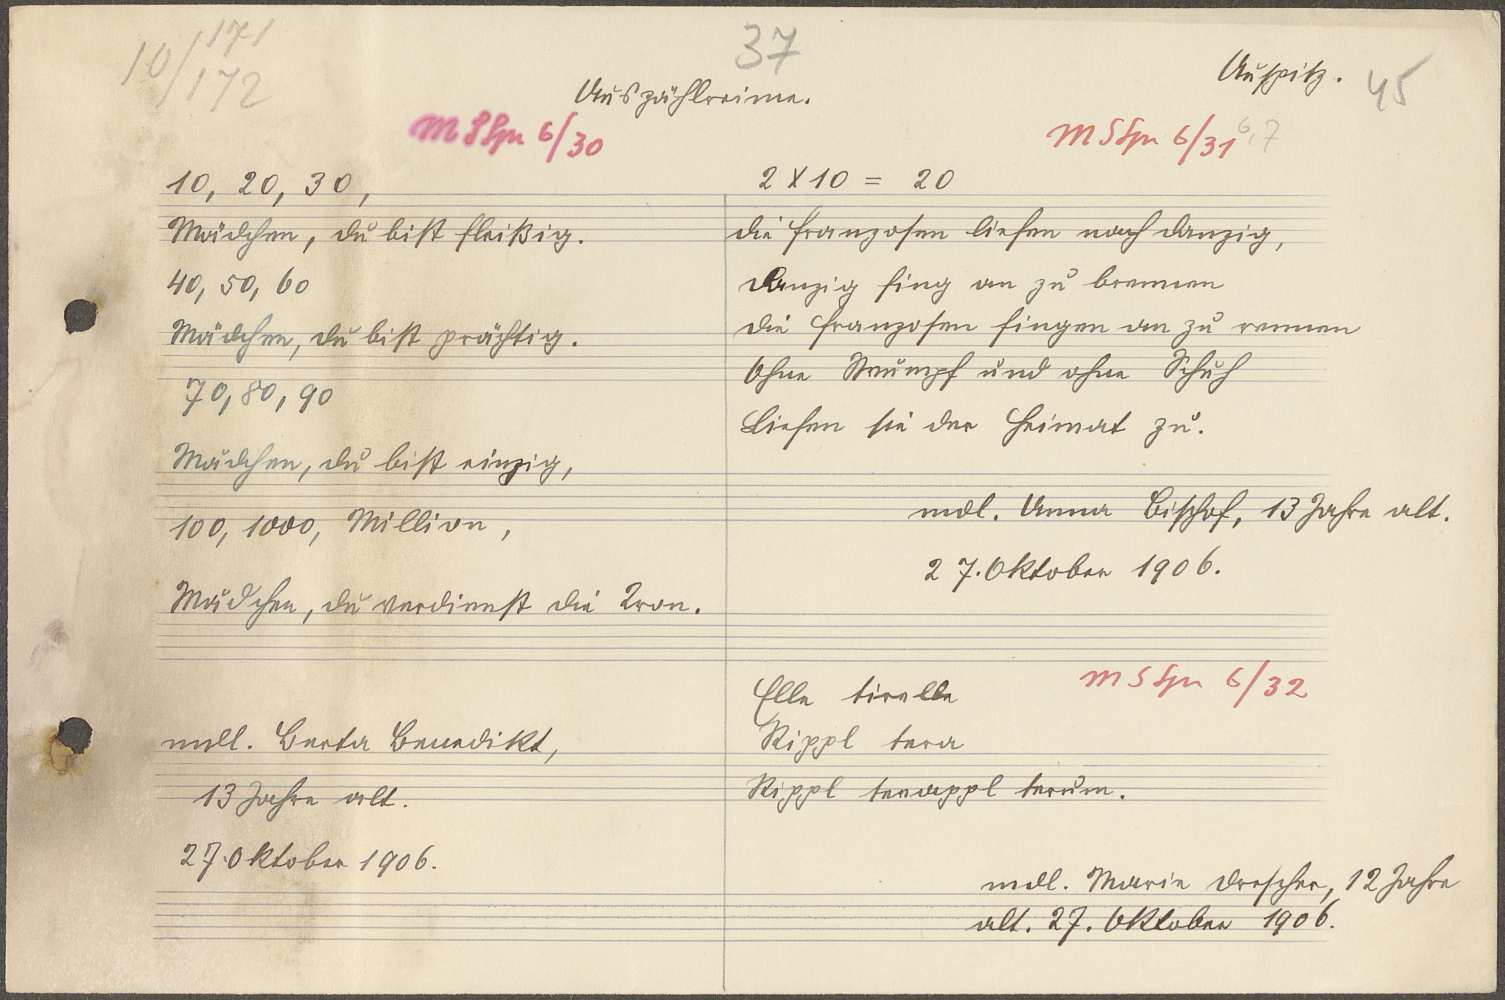 10/171
172
37
Auspitz.
45
Auszählreime.
M S Spr 6/30
10, 20, 30,
Mädchen, du bist fleißig.
40, 50, 60
Mädchen, du bist prächtig.
70, 80, 90
Mädchen, du bist einzig,
100, 1000, Million,
Mädchen, du verdienst die Kron.
mdl. Berta Benedikt,
13 Jahre alt.
27. Oktober 1906.
M S Spr 6/31
6,7
2 X 10 = 20
die Franzosen liefen nach Danzig,
Danzig fing an zu brennen
die Franzosen fingen an zu rennen
Ohne Strumpf und ohne Schuh
Liefen sie der Heimat zu.
mdl. Anna Bischof, 13 Jahre alt.
27. Oktober 1906.
M S Spr 6/32
Elle tirelle
Rippl tera
Rippl terappl terum.
mdl. Marie Drescher, 12 Jahre
alt. 27. Oktober 1906.